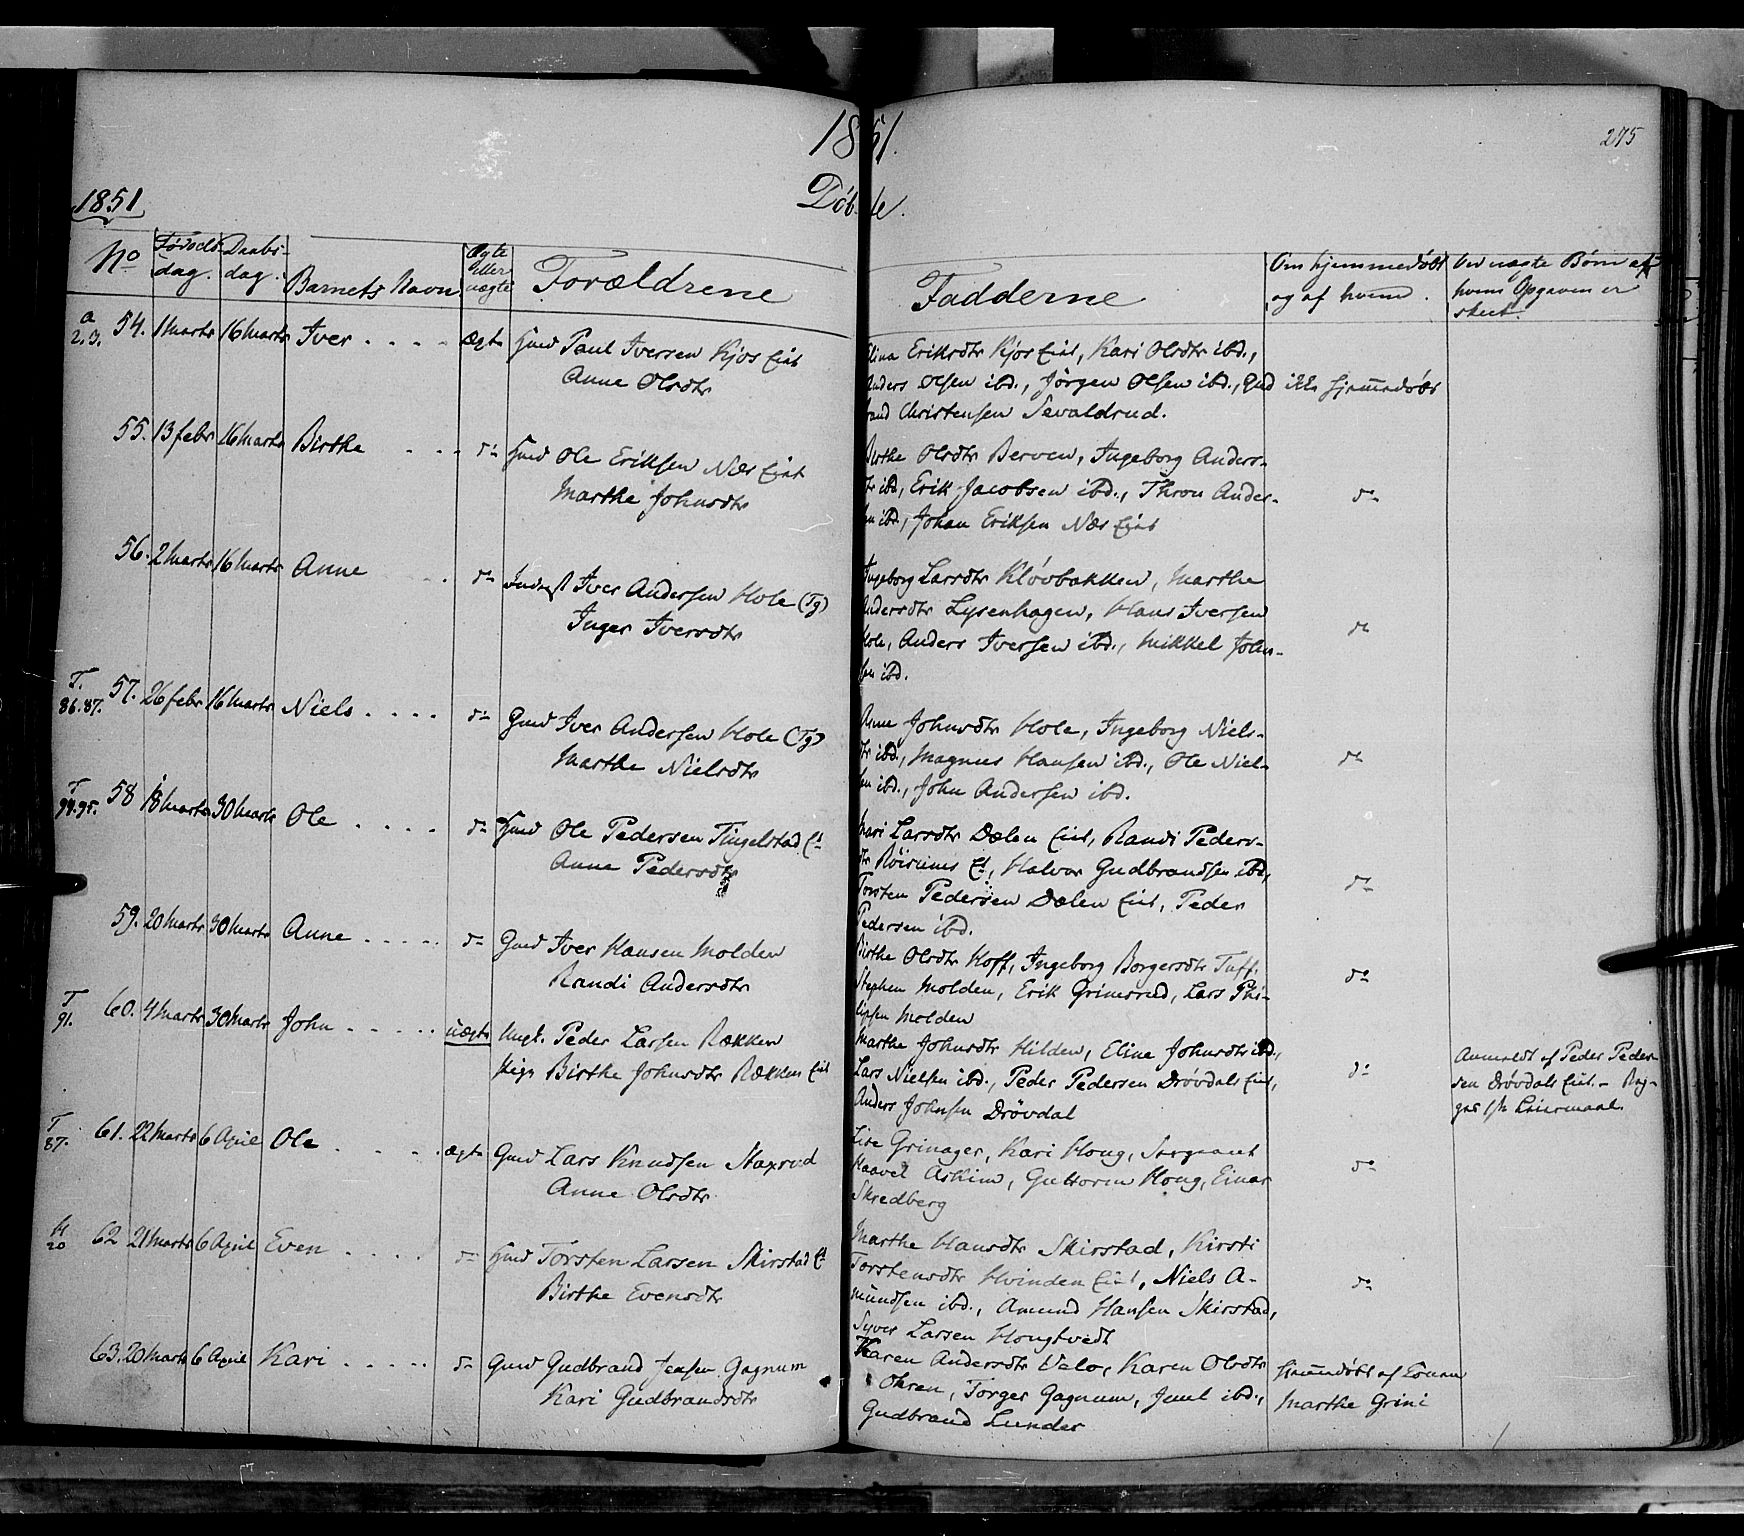 1851.
275
1851
Døbte.
No Fødselsdag. Daabsdag. Barnets Navn Ægte eller uægte Forældrene Fadderne Om hjemmedøbt og af hvem. Ved uægte Børn af hvem Opgaven er skeet.
a 2.3. 54. 1 Marts 16 Marts Iver . . . . ægte Huus Paul Iversen Kjos Eiet
Anne Olsdtr
Elina Eriksdtr Kjos Eiet, Kari Olsdtr ibd.,
Anders Olsen ibd., Jörgen Olsen ibd., Gud
brand Christensen Sevaldrud.
ikke hjemmedøbt
55. 13 febr 16 Marts Birthe . . . do Huus Ole Eriksen Næs Eiet
Marthe Johnsdtr
Birthe Olsdtr Berven, Ingeborg Anders-
dtr ibd, Erik Jacobsen ibd., Thron Ander-
sen ibd., Johan Eriksen Næs Eiet
do
56. 2 Marts 16 Marts Anne . . do Inderst Iver Andersen Hole (Tg)
Inger Iversdtr
Ingeborg Larsdtr Kløvbakken, Marthe
Andersdtr Lysenhagen, Hans Iversen
Hole, Anders Iversen ibd., Mikkel John-
sen ibd.
do
T. 86.87. 57. 26 febr 16 Marts Niels . . . . do Gmd Iver Andersen Hole (Tg)
Marthe Nielsdtr
Anne Johnsdtr Hole, Ingeborg Niels-
dtr ibd., Magnus Hansen ibd., Ole Niel-
sen ibd., John Andersen ibd.
do
T 94.95. 58 18 Marts 30 Marts Ole . . . . do Huus Ole Pedersen Tingelstad Et
Anne Pedersdtr
Mari Larsdtr Dælen Eiet, Randi Peders-
dtr Röisums Et, Halvor Gudbrandsen ibd,
Torsten Pedersen Dælen Eiet, Peder
Pedersen ibd.
do
59. 20 Marts 30 Marts Anne . . . . . do Gmd Iver Hansen Molden
Randi Andersdtr
Birthe Olsdtr Hoff, Ingeborg Borgersdtr Tuff.
Stephen Molden, Erik Grinsrud, Lars Phi-
lipsen Molden
do
T 91. 60. 4 Marts 30 Marts John . . . . . uægte Ungk. Peder Larsen Rækken
Pige Birthe Johnsdtr Rækken Eiet
Marthe Johnsdtr Hilden, Eline Johnsdtr ibd.,
Lars Nielsen ibd., Peder Pedersen Drövdals Eiet,
Anders Johnsen Drövdal
do
Anmeldt af Peder Peder-
sen Drövdals Eiet. - Beg-
ges 1ste Leiermaal.
T 87. 61. 22 Marts 6 April Ole . . . . . ægte Gmd Lars Knudsen Staxrud
Anne Olsdtr
Lise Grinager, Kari Houg, Sergeant
Haavel Askim, Guttorm Houg, Einar
Skredberg
do
H 20 62 21 Marts 6 April Even . . . . do Huus Torsten Larsen Skirstad Et
Birthe Evensdtr
Marthe Hansdtr Skirstad, Kirsti
Torstensdtr Hvinden Eiet, Niels A-
mundsen ibd., Amund Hansen Skirstad,
Syver Larsen Hougtvedt
do
63. 20 Marts 6 April Kari . . . . . do Gmd Gudbrand Jensen Gagnum
Kari Gudbrandsdtr
Karen Andersdtr Velo, Karen Olsdtr
Ohren, Torger Gagnum, Juul ibd.,
Gudbrand Lunder
hjemmedøbt af
Marthe Grini